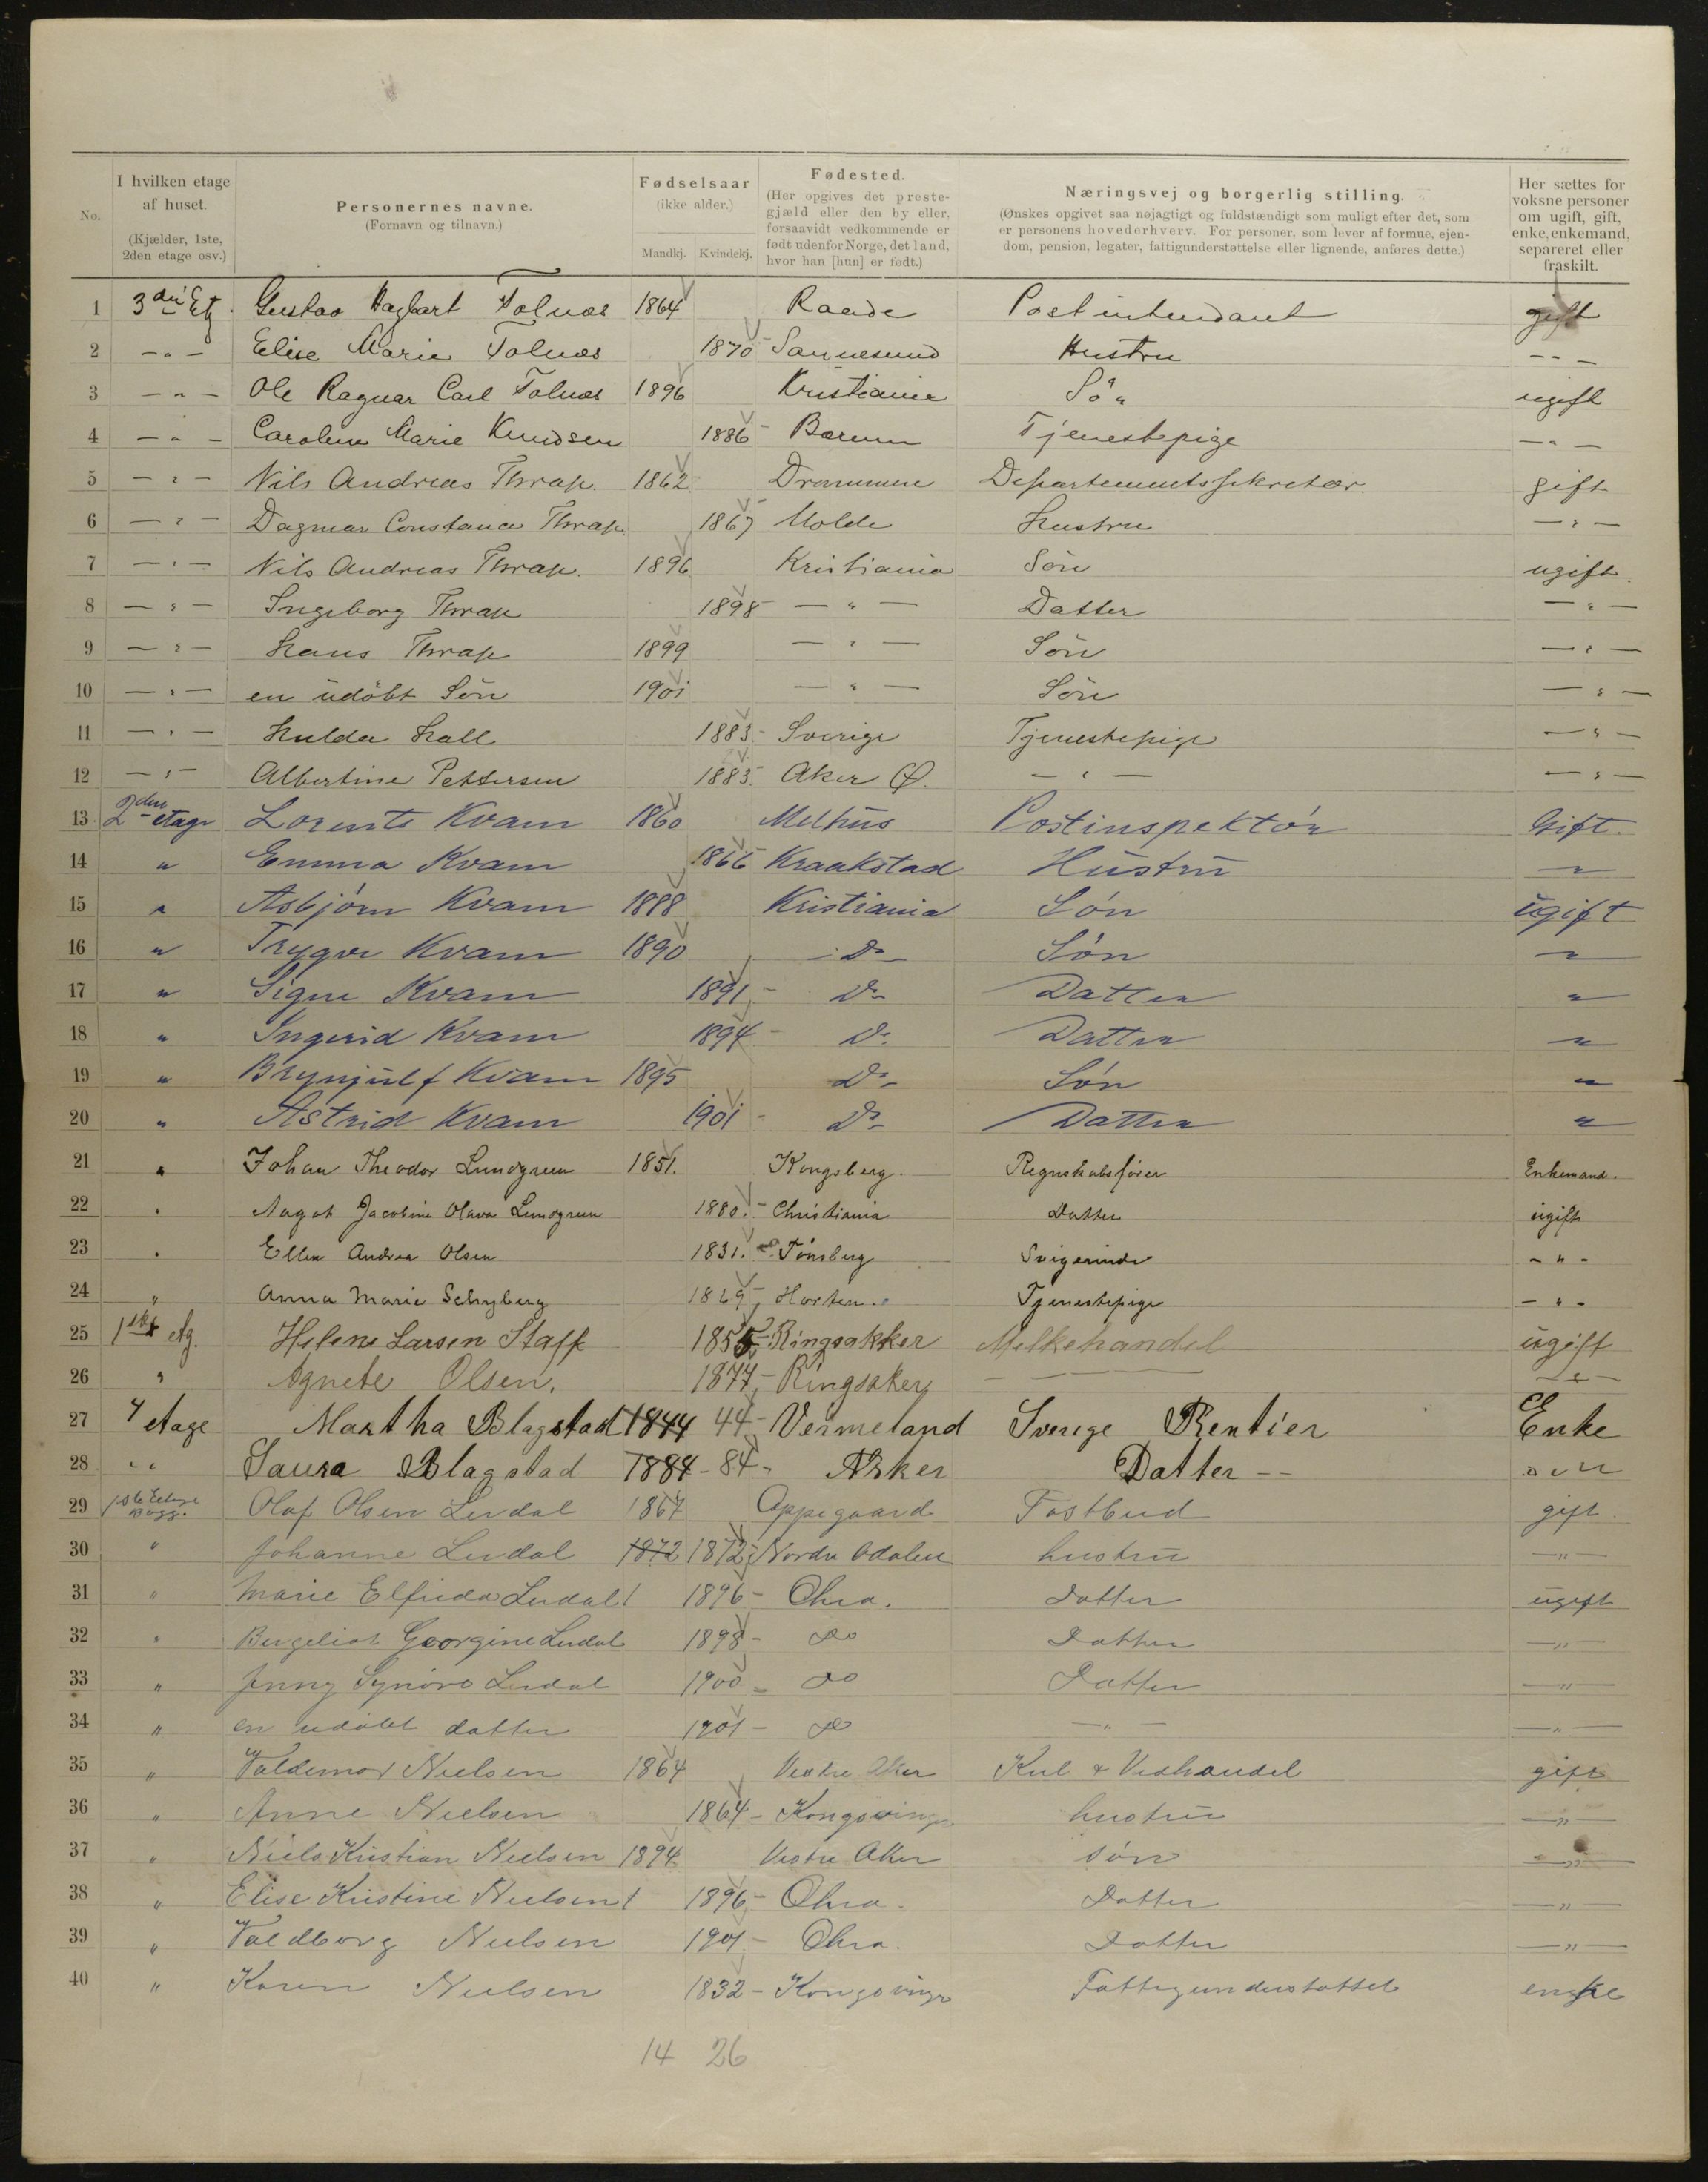 No.
I hvilken etage af huset.
(Kjælder, 1ste, 2den etage osv.)
Personernes navne.
(Fornavn og tilnavn.)
Fødselsaar
(ikke alder.)
Mandkj. Kvindekj.
Fødested.
(Her opgives det prestegjæld eller den by eller, forsaavidt vedkommende er født udenfor Norge, det land, hvor han [hun] er født.)
Næringsvej og borgerlig stilling.
(Ønskes opgivet saa nøjagtigt og fuldstændigt som muligt efter det, som er personens hovederhverv. For personer, som lever af formue, ejendom, pension, legater, fattigunderstøttelse eller lignende, anføres dette.)
Her sættes for voksne personer om ugift, gift, enke, enkemand, separeret eller fraskilt.
1 3die Etg. Gustav Hagbart Tolnæs 1864 Raade Postintendant gift
2 — " — Elise Marie Tolnæs 1870 Sannesund Hustru — " —
3 — " — Ole Ragnar Carl Tolnæs 1896 Kristiania Søn ugift
4 — " — Caroline Marie Knudsen 1886 Bærum Tjenestepige — " —
5 — " — Nils Andreas Thrap. 1862 Drammen Departementssekretær. gift
6 — " — Dagmar Constance Thrap 1867 Molde Hustru — " —
7 — " — Nils Andreas Thrap. 1896 Kristiania Søn ugift.
8 — " — Ingeborg Thrap 1898 — " — Datter — " —
9 — " — Hans Thrap 1899 — " — Søn — " —
10 — " — en udøbt Søn 1901 — " — Søn — " —
11 — " — Hulda Hall 1883 Sverige Tjenestepige — " —
12 — " — Albertine Pettersen 1883 Aker Ø. — " — — " —
13 2den etage Lorents Kvam 1860 Melhus Postinspektør Gift.
14 " Emma Kvam 1866 Kraakstad Hustru "
15 " Asbjørn Kvam 1888 Kristiania Søn ugift
16 " Trygve Kvam 1890 Do Søn "
17 " Signe Kvam 1891 Do Datter "
18 " Ingerid Kvam 1894 Do Datter "
19 " Brynjulf Kvam 1895 Do Søn "
20 " Astrid Kvam 1901 Do Datter "
21 " Johan Theodor Lundgreen 1851. Kongsberg. Regnskabsfører Enkemand.
22 " Aagot Jacobine Olava Lundgreen 1880. Christiania Datter ugift
23 " Ellen Andrea Olsen 1831. Tønsberg Svigerinde — " —
24 " Anna Marie Schyberg 1869 Horten. Tjenestepige — " —
25 1ste etg. Helene Larsen Staff 1855 Ringsakker Melkehandel ugift
26 " Agnete Olsen. 1877 Ringsaker — — — " —
27 4 etage Martha Blagstad 1844 44 Vermeland Sverige Rentier Enke
28 " Laura Blagstad 1884 84 Asker Datter — "
29 1ste Etage Bagg. Olaf Olsen Lerdal 1867 Oppegaard Postbud gift
30 " Johanne Lerdal 1872 1872 Nordre Odalen hustru — " —
31 " Marie Elfrida Lerdal 1896 Chra. Datter ugift
32 " Bergeliot Georgine Lerdal 1898 do Datter — " —
33 " Jenny Synøve Lerdal 1900 do Datter — " —
34 " en udøbt datter 1901 do — " — — " —
35 " Valdemar Nielsen 1864 Vestre Aker Kul & Vedhandel gift
36 " Anne Nielsen 1864 Kongsvinger hustru — " —
37 " Niels Kristian Nielsen 1894 Vestre Aker søn — " —
38 " Elise Kristine Nielsen 1896 Chra. Datter — " —
39 " Valdborg Nielsen 1901 Chra. Datter — " —
40 " Karen Nielsen 1832 Kongsvinger Fattigunderstøttet enke
14 26